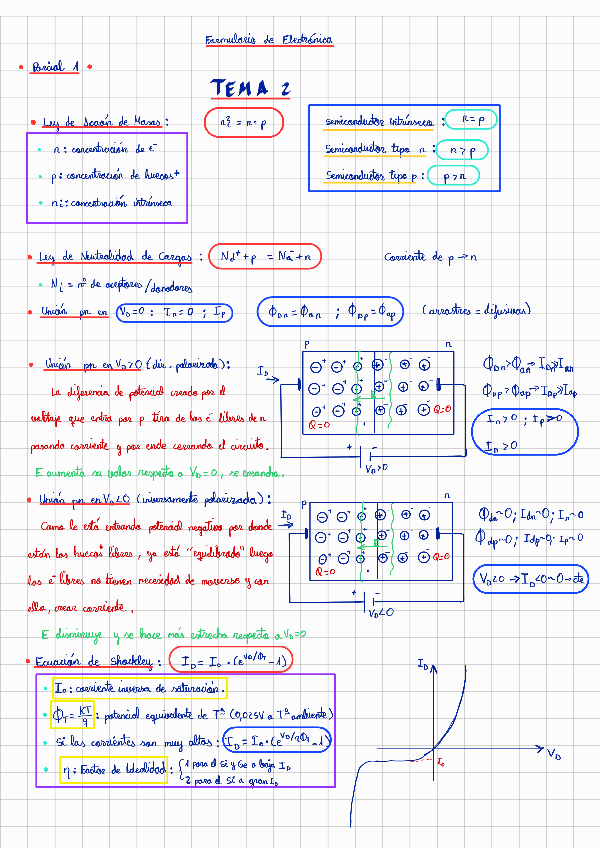 Formulario de Electrónica
• Parcial 1 •
TEMA 2
• Ley de Acción de Masas: nᵢ² = n · p
• n: concentración de e⁻
• p: concentración de huecos⁺
• nᵢ: concentración intrínseca
Semiconductor intrínseco: n = p
Semiconductor tipo n: n > p
Semiconductor tipo p: p > n
• Ley de Neutralidad de Cargas: Nd⁺ + p = Na⁻ + n
Corriente de p → n
• Nᵢ = nº de aceptores/donadores
• Unión pn en V_D = 0 : In = 0 ; Ip
Φ_Dn = Φ_an ; Φ_Dp = Φ_ap (arrastres = difusivas)
• Unión pn en V_D > 0 (dir. polarizada):
La diferencia de potencial creado por el
voltaje que entra por p tira de los e⁻ libres de n
pasando corriente y por ende cerrando el circuito.
E aumenta su valor respecto a V_D = 0, se ensancha.
p n
I_D
Q=0 Q=0
+ −
V_D>0
Φ_Dn > Φ_an → I_Dn ≫ I_an
Φ_Dp > Φ_ap → I_Dp ≫ I_ap
In > 0 ; Ip > 0
I_D > 0
• Unión pn en V_D < 0 (inversamente polarizada):
Como le está entrando potencial negativo por donde
están los huecos⁺ libres, ya está "equilibrado" luego
los e⁻ libres no tienen necesidad de moverse y con
ello, crear corriente.
E disminuye y se hace más estrecha respecto a V_D = 0
p n
I_D
Q=0 Q=0
+ −
V_D<0
Φ_dn ~ 0; I_dn ~ 0; In ~ 0
Φ_dp ~ 0; I_dp ~ 0; Ip ~ 0
V_D < 0 → I_D < 0 ~ 0 → cte
• Ecuación de Shockley: I_D = I₀ · (e^(V_D/Φ_T) − 1)
• I₀: corriente inversa de saturación.
• Φ_T = KT/q : potencial equivalente de Tª (0,025V a Tª ambiente)
• Si las corrientes son muy altas: I_D = I₀ · (e^(V_D/ηΦ_T) − 1)
• η: Factor de Idealidad: { 1 para el Si y Ge a baja I_D
2 para el Si a gran I_D
I_D
V_D
I₀